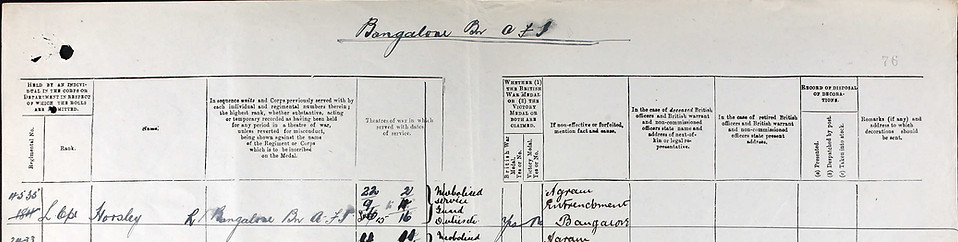 Bangalore Bn A F I
76
HELD BY AN INDIVI-
DUAL IN THE CORPS OR
DEPARTMENT IN RESPECT
OF WHICH THE ROLLS
ARE SUBMITTED.
Regimental No.
Rank.
Name.
In sequence units and Corps previously served with by
each individual and regimental numbers therein;
the highest rank, whether substantive, acting
or temporary recorded as having been held
for any period in a theatre of war,
unless reverted for misconduct,
being shown against the name
of the Regiment or Corps
which is to be inscribed
on the Medal.
Theatres of war in which
served with dates
of service.
WHETHER (1)
THE BRITISH
WAR MEDAL
OR (2) THE
VICTORY
MEDAL OR
BOTH ARE
CLAIMED.
British War
Medal.
Yes or No.
Victory Medal.
Yes or No.
If non-effective or forfeited,
mention fact and cause.
In the case of deceased British
officers and British warrant
and non-commissioned
officers state name and
address of next-of-
kin or legal re-
presentative.
In the case of retired British
officers and British warrant
and non-commissioned
officers state present
address.
RECORD OF DISPOSAL
OF DECORA-
TIONS.
(a) Presented.
(b) Despatched by post.
(c) Taken into stock.
Remarks (if any) and
address to which
decorations should
be sent.
L Cpl
Horsley
Bangalore Bn A.F.I
22
9
16
Mobolised
service
Guard
Duties
Yes
Agram
Entrenchment
Bangalore
Mobolised
Agram